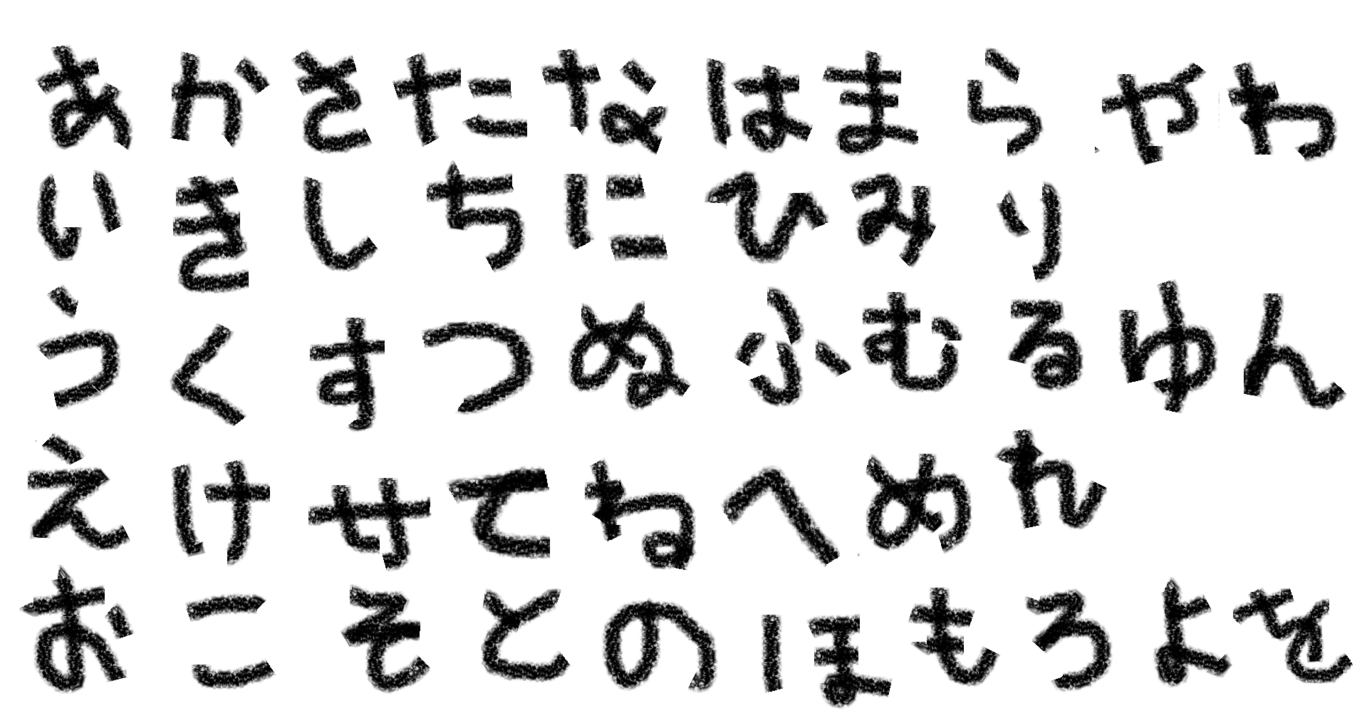 あかさたなはまらやわ
いきしちにひみり
うくすつぬふむるゆん
えけせてねへめれ
おこそとのほもろよを